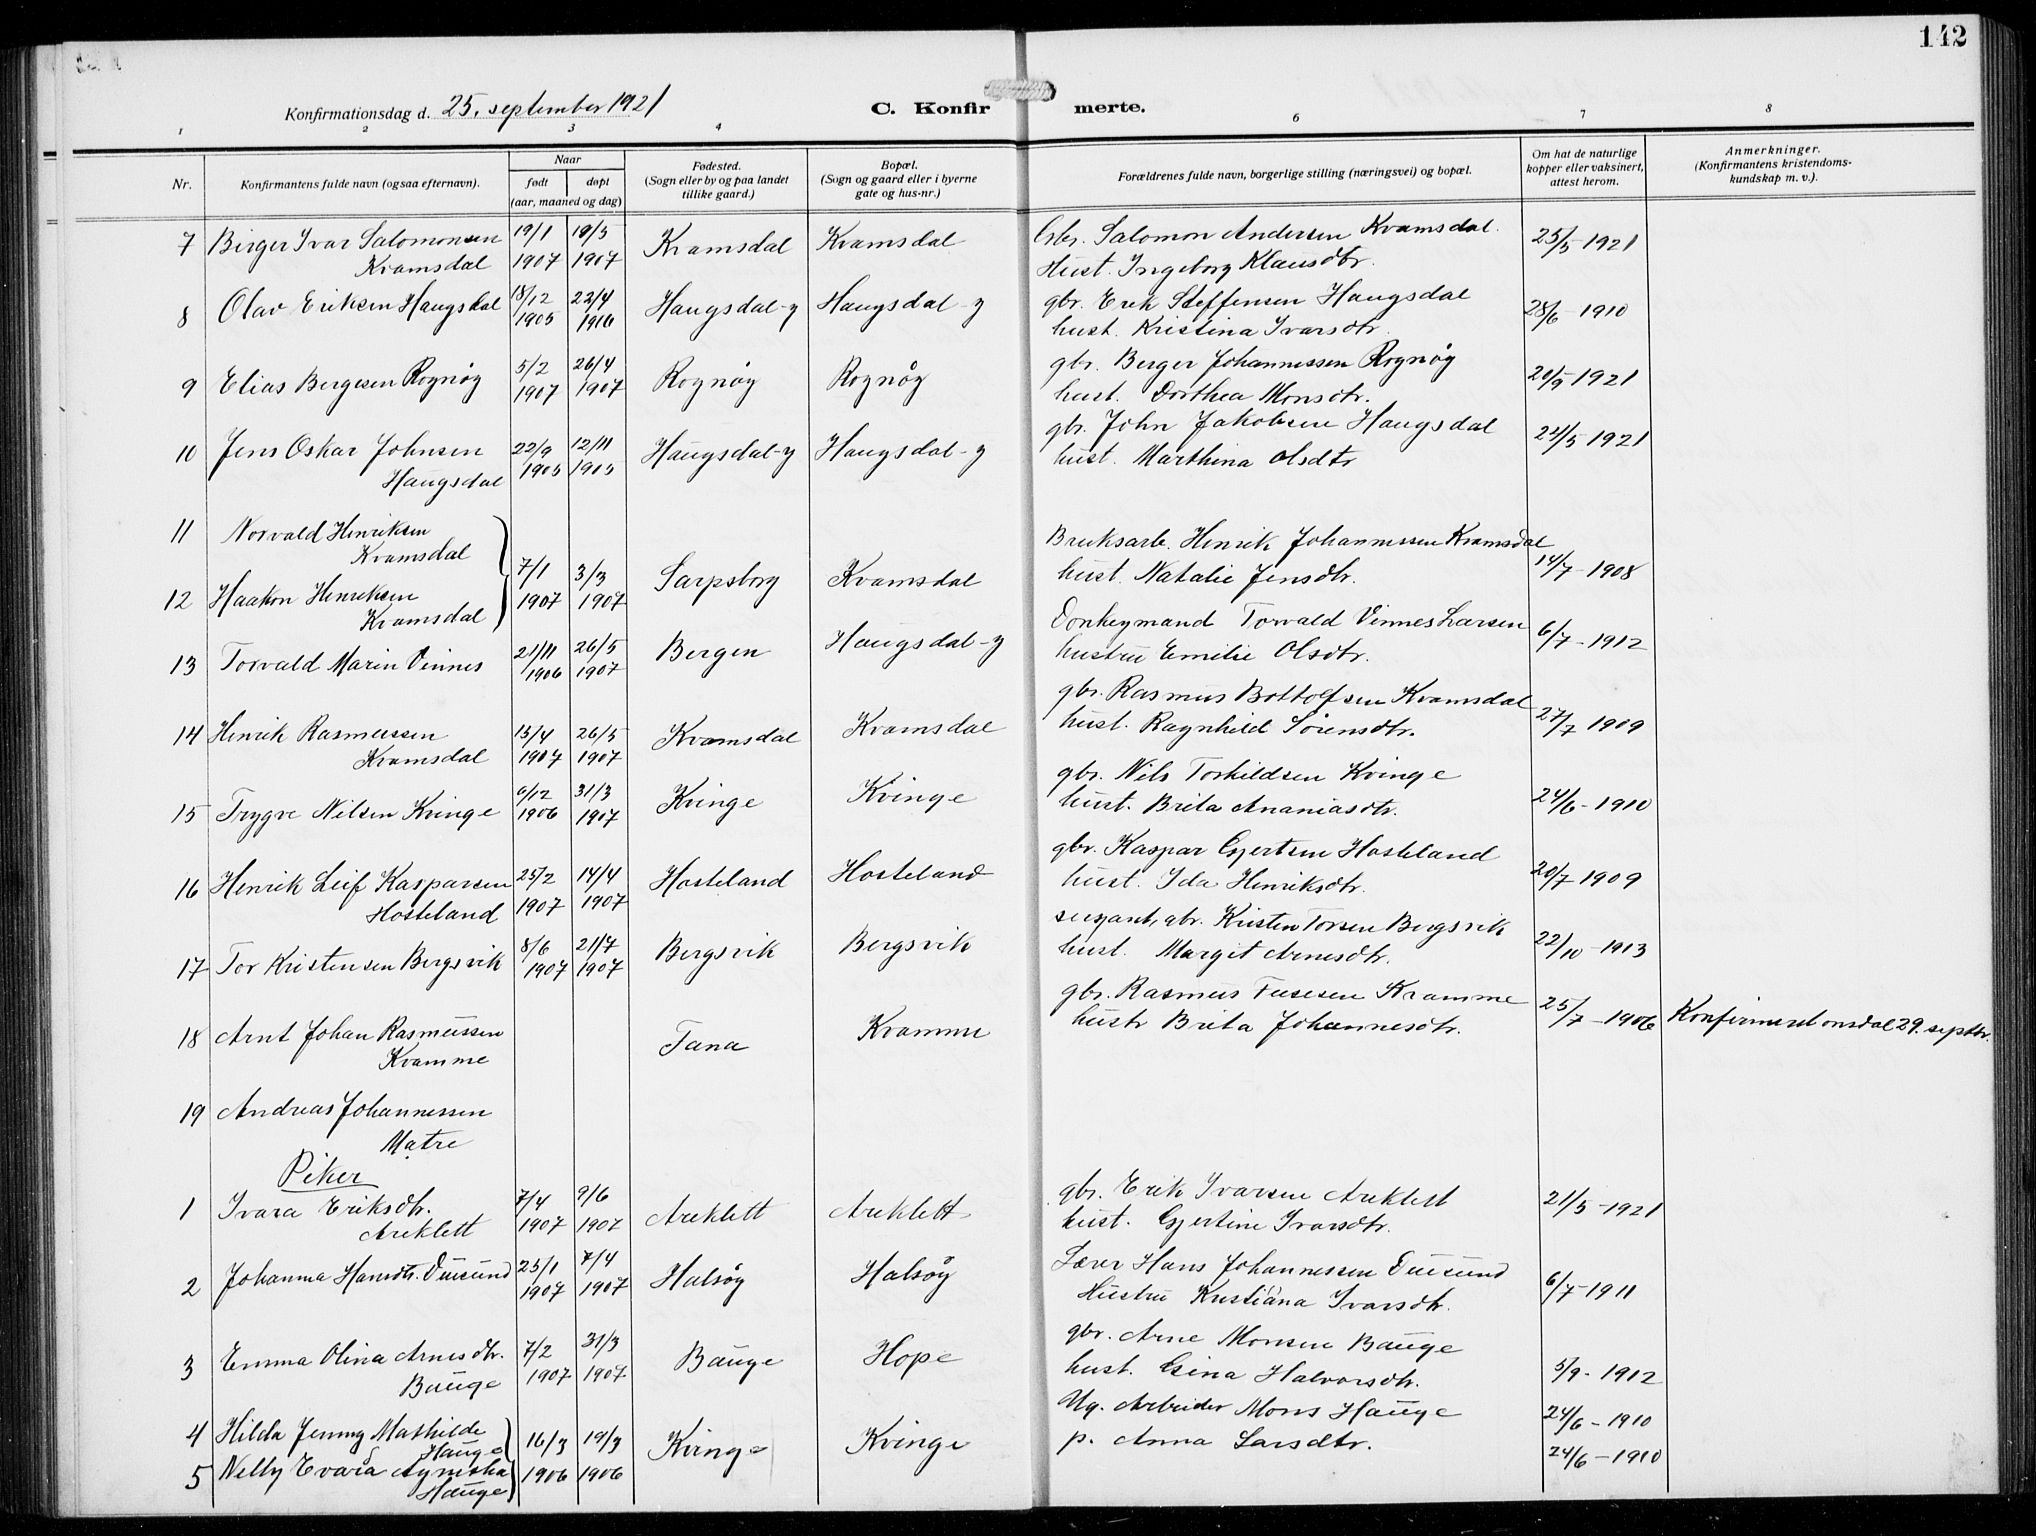 142
Konfirmationsdag d. 25. september 1921
C. Konfirmerte.
1 2 3 4 6 7 8
Nr.
Konfirmantens fulde navn (ogsaa efternavn).
Naar
født døpt
(aar, maaned og dag)
Fødested.
(Sogn eller by og paa landet
tillike gaard.)
Bopæl.
(Sogn og gaard eller i byerne
gate og hus-nr.)
Forældrenes fulde navn, borgerlige stilling (næringsvei) og bopæl.
Om hat de naturlige
kopper eller vaksinert,
attest herom.
Anmerkninger.
(Konfirmantens kristendoms-
kundskap m. v.).
7 Birger Ivar Salomonsen 19/1 Kvamsdal Kvamsdal Gbr. Salomon Andersen Kvamsdal 25/5 1921
Kvamsdal 1907 1907 Hust. Ingeborg Klausdtr.
8 Olav Eriksen Haugsdal 18/12 22/4 Haugsdal-y Haugsdal-y gbr. Erik Steffensen Haugsdal 28/6 - 1910
1905 1916 hust. Kristina Ivarsdtr.
9 Elias Bergesen Rognøy 5/2 26/4 Rognøy Rognøy gbr. Berger Johannessen Rognøy 20/9 1921
1907 1907 hust. Dorthea Monsdtr.
10 Jens Oskar Johnsen 22/9 12/11 Haugsdal-y Haugsdal-y gbr. John Jakobsen Haugsdal 24/5 1921
Haugsdal 1905 1905 hust. Marthina Olsdtr
11 Norvald Henriksen
Kvamsdal Bruksarb. Henrik Johannessen Kvamsdal
12 Haakon Henriksen 7/1 3/3 Sarpsborg Kvamsdal hust. Natalie Jensdtr. 14/7 - 1908
Kvamsdal 1907 1907
13 Torvald Marin Vinnes 21/11 26/5 Bergen Haugsdal-y Donkeymand Torvald Vinnes Larsen 6/7 - 1912
1906 1907 hustru Emilie Olsdtr.
14 Henrik Rasmussen 13/4 26/5 Kvamsdal Kvamsdal gbr. Rasmus Bottolfsen Kvamsdal 27/7 1909
Kvamsdal 1907 1907 hust. Ragnhild Sørensdtr.
15 Trygve Nilsen Kvinge 6/12 31/3 Kvinge Kvinge gbr. Nils Torkildsen Kvinge 24/6 - 1910
1906 1907 hust. Brita Ananiasdtr.
16 Henrik Leif Kasparsen 25/2 14/4 Hosteland Hosteland gbr. Kaspar Gjertsen Hosteland 20/7 1909
Hosteland 1907 1907 hust. Ida Henriksdtr.
17 Tor Kristensen Bergsvik 8/6 21/7 Bergsvik Bergsvik sersjant, gbr. Kristen Torsen Bergsvik 22/10 - 1913
1907 1907 hust. Margit Arnesdtr.
18 Arnt Johan Rasmussen Tana Kvamme gbr. Rasmus Fusesen Kvamme 25/7 - 1906 Konfirmert onsdal 29. septbr.
Kvamme hustr Brita Johannesdtr.
19 Andreas Johannessen
Matre
Piker
1 Ivara Eriksdtr. 7/4 9/6 Areklett Areklett gbr. Erik Ivarsen Areklett 21/5 - 1921
Areklett 1907 1907 hust. Gjertine Ivarsdtr.
2 Johanna Hansdtr. Duesund 23/1 7/4 Halsøy Halsøy Lærer Hans Johannessen Duesund 6/7 - 1911
1907 1907 Hustru Kristiána Ivarsdtr.
3 Emma Olina Arnesdtr. 7/2 31/3 Bauge Hope gbr. Arne Monsen Bauge 5/9 - 1912
Bauge 1907 1907 hust. Gina Halvorsdtr.
4 Hilda Jenny Mathilde 16/3 19/3 Kvinge Kvinge Ug. Arbeider Mons Hauge 24/6 - 1910
Hauge p. Anna Larsdtr.
5 Nelly Evara 1906 1906 24/6 - 1910
Hauge